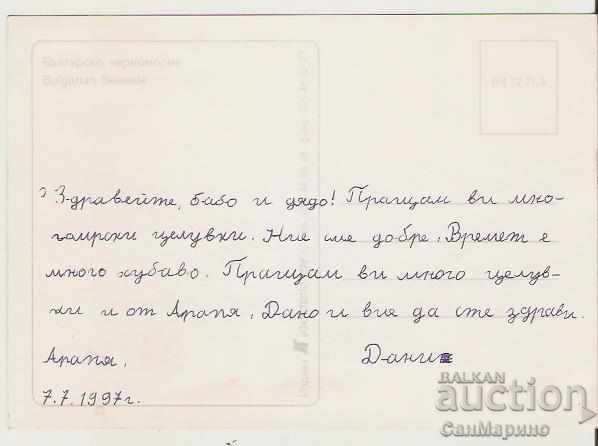 Българско черноморие
Bulgarian Seaside
Здравейте, бабо и дядо! Пращам ви мно-
го морски целувки. Ние сме добре. Времет е
много хубаво. Пращам ви много целув-
ки и от Арапя. Дано и вие да сте здрави.
Арапя,
Дани
7.7.1997г.
BALKAN
auction
СанМарино